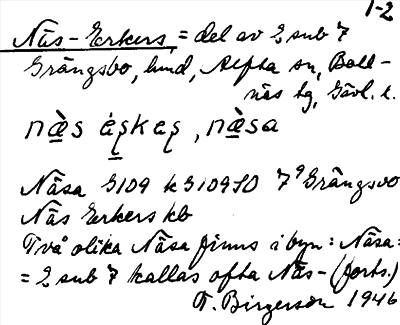 1-2
Näs-Erkers, = del av 2 sub 7
Grängsbo, hmd, Alfta sn, Boll-
näs tg, Gävl. l.
nä̀s ä́ʂkeʂ, nä̀sa
Näsa G109 kG109SO 7⁹ Grängsbo
Näs Erkers kb
Två olika Näsa finns i byn: Näsa:
= 2 sub 7 kallas ofta Näs- (forts.)
F. Birgerson 1946